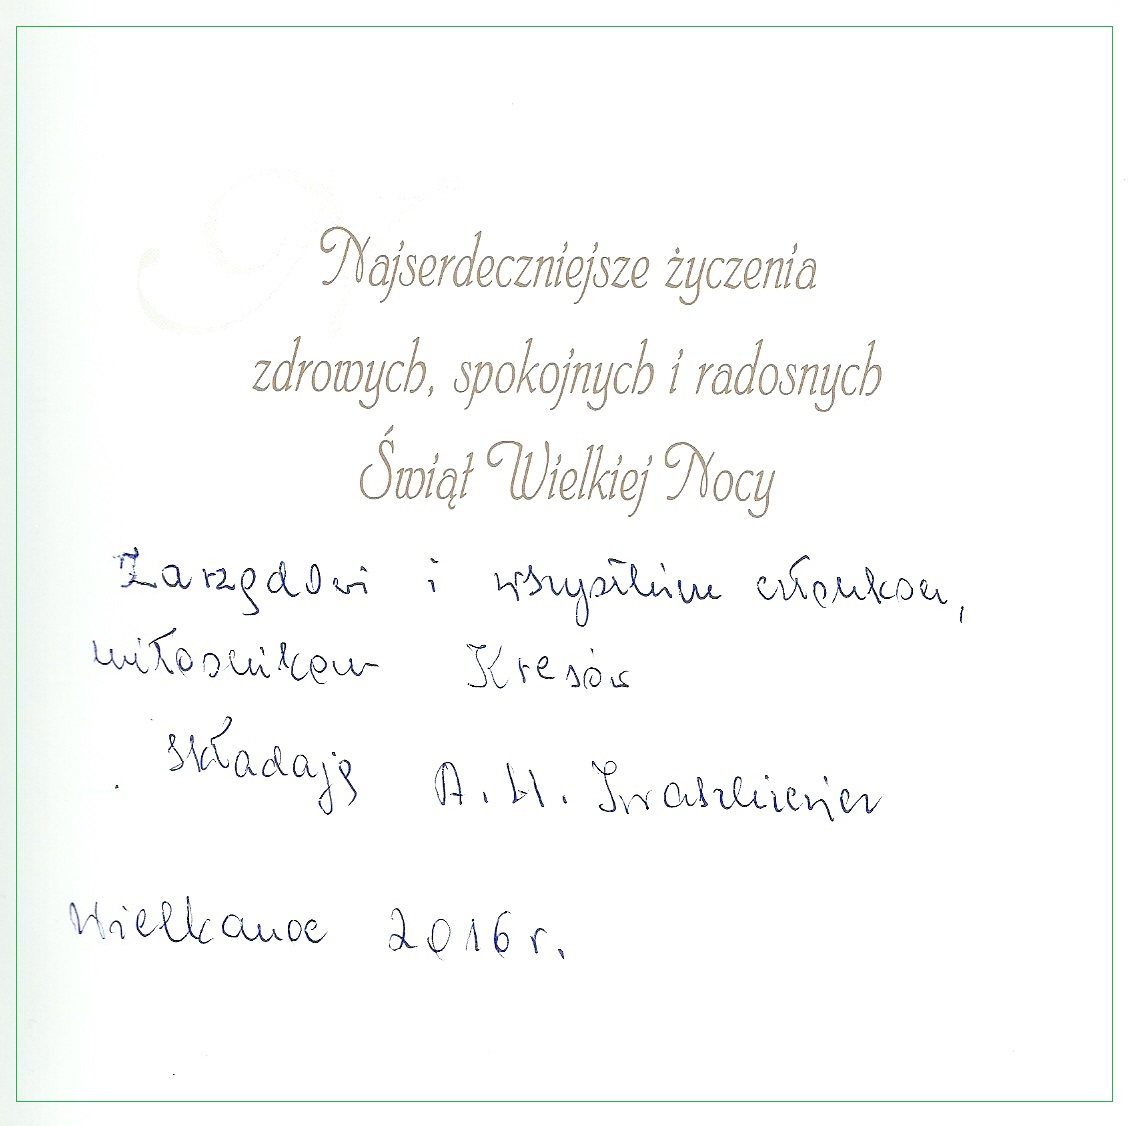 Najserdeczniejsze życzenia
zdrowych, spokojnych i radosnych
Świąt Wielkiej Nocy
Zarządowi i wszystkim członkom,
miłośnikom Kresów
składają A. H. Iwaszkiewicz
Wielkanoc 2016 r.